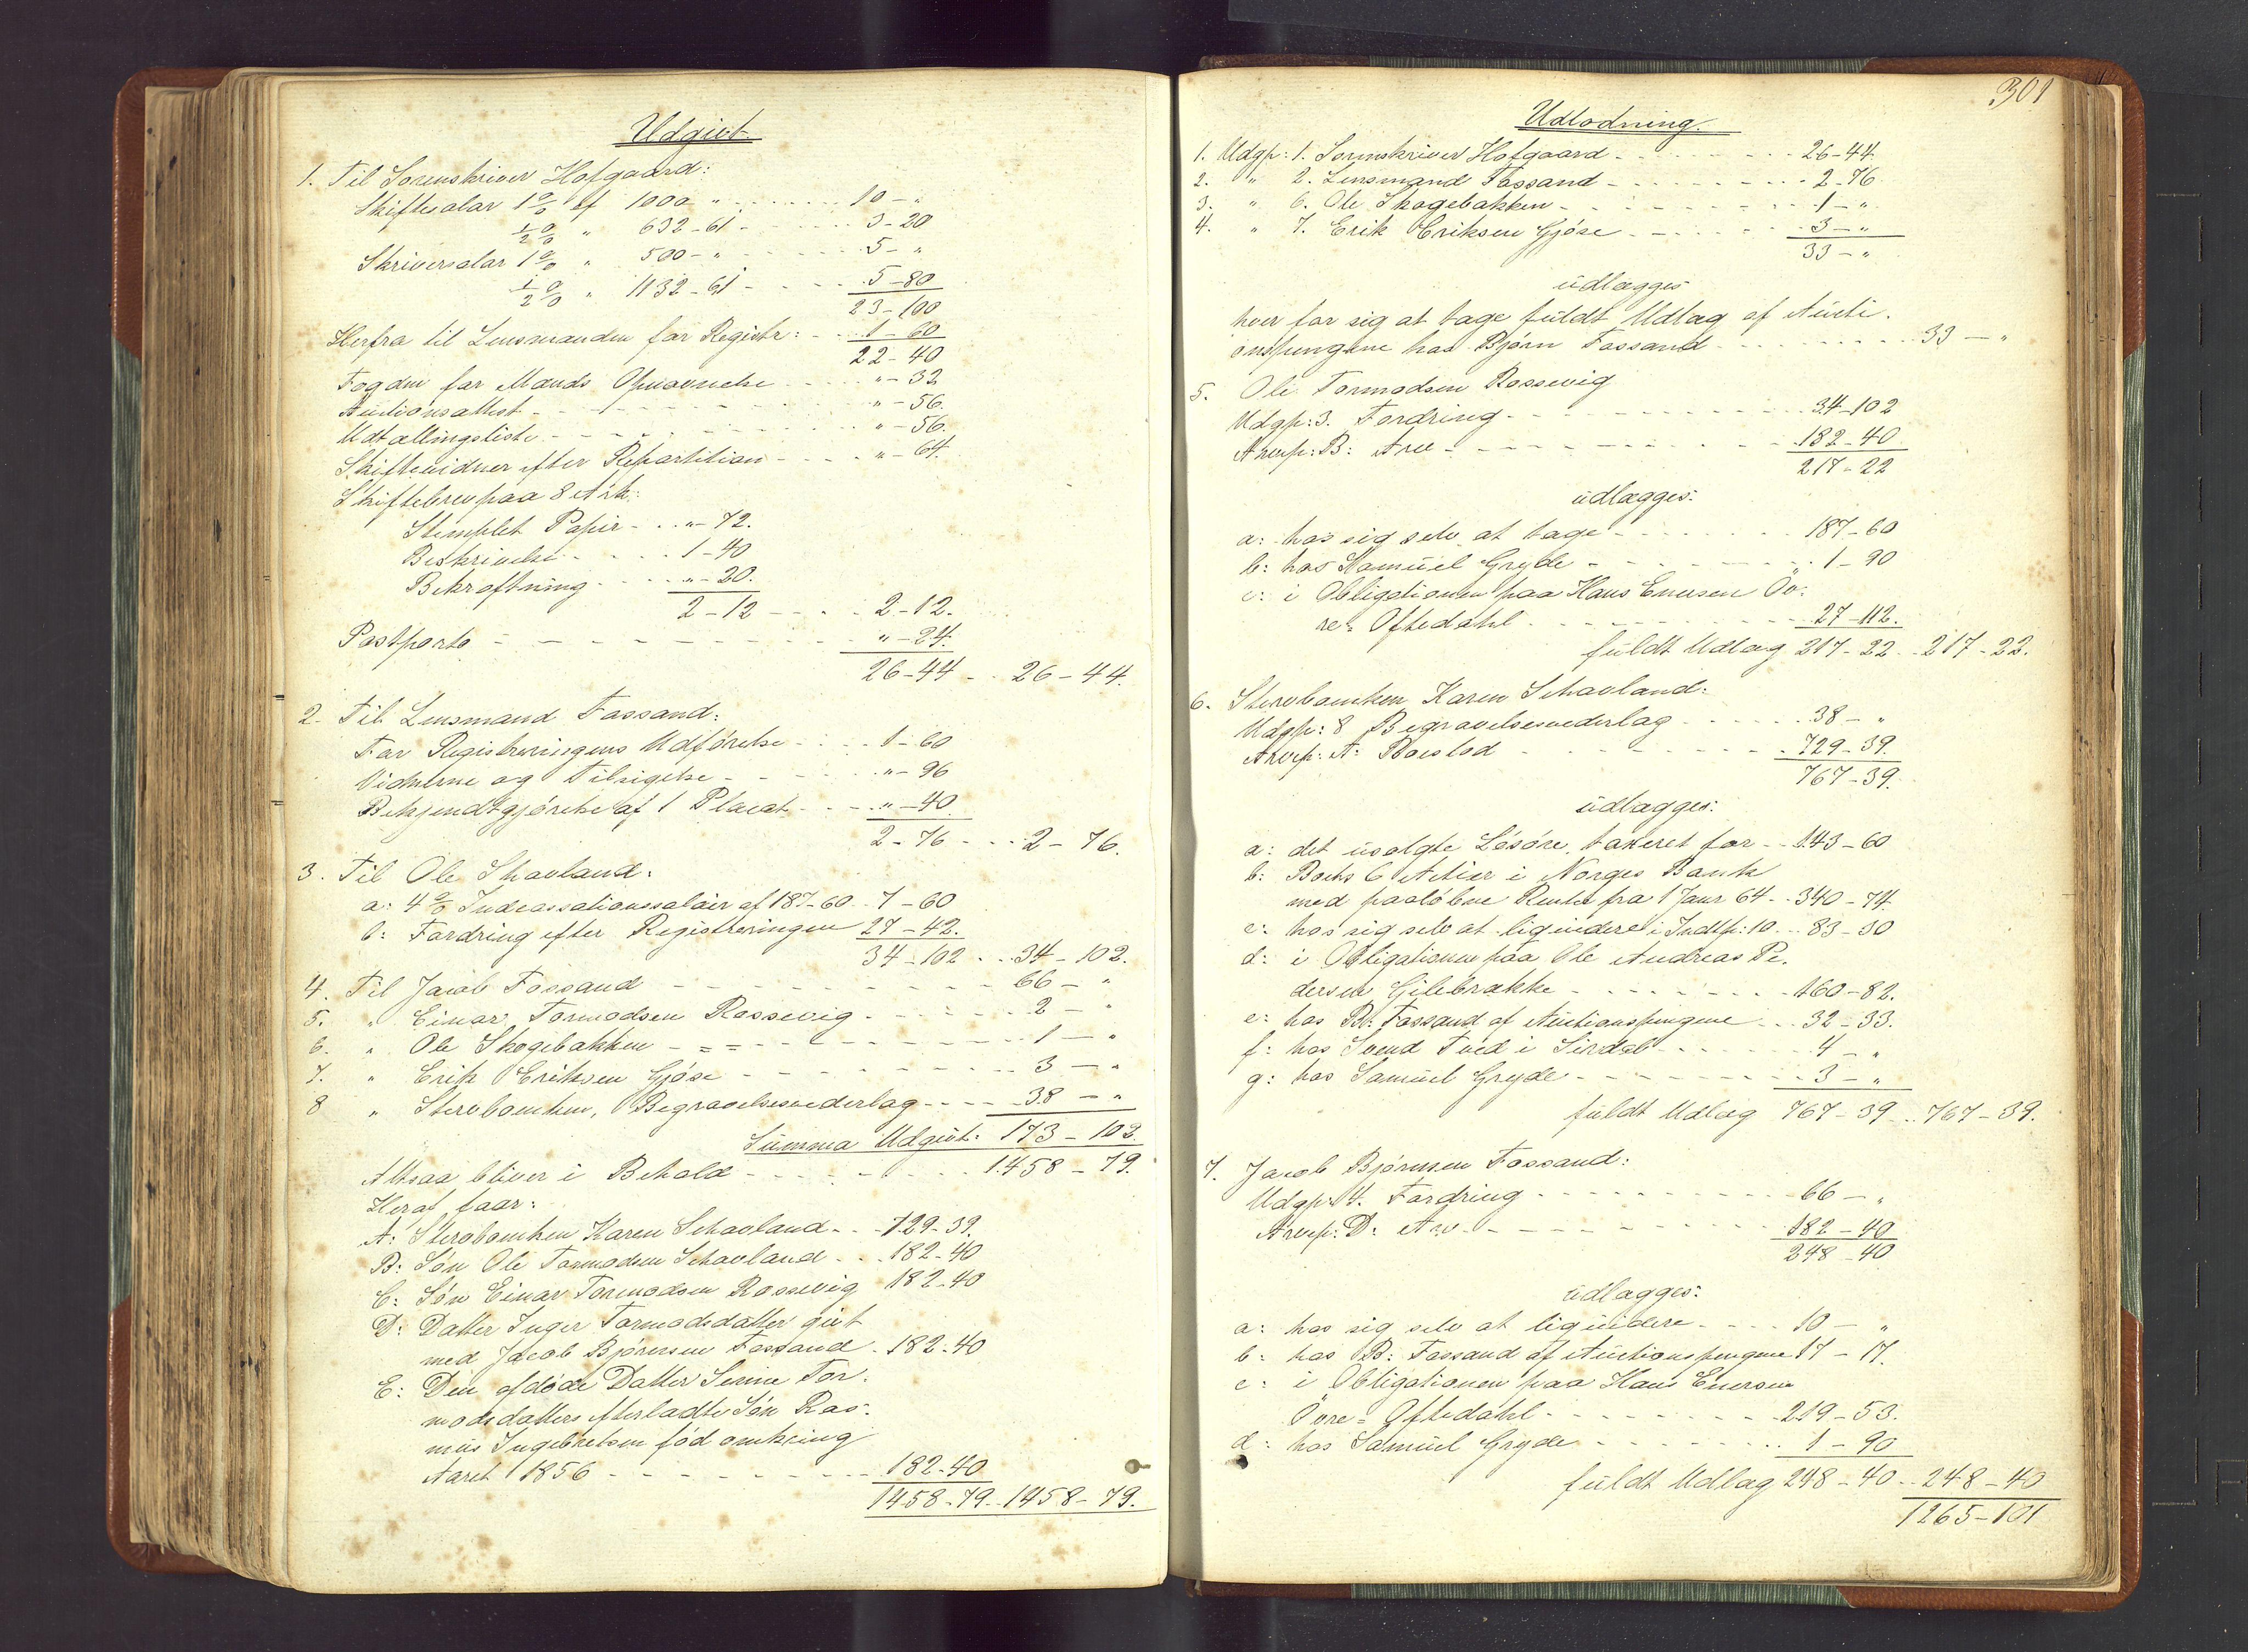 Udgivt.
1. Til Sorenskriver Hofgaard:
Skiftesalar 1 % af 1000 " - - - - 10 - "
½ % " 632-61 - - - - 3-20
Skriversalar 1 % " 500 - " - - - - 5 - "
½ % " 1132-61 - - - - 5-80
23-100
Herfra til Lensmanden for Registr: - - 1-60
22-40
Fogden for Mænds Opnævnelse - - - "-32
Auctionsattest - - - - "-56.
Udtællingsliste - - - - "-56.
Skiftevidner efter Repartition - - - - "-64.
Skiftebrev paa 8 Ark:
Stemplet Papir - - - "-72.
Beskrivelse - - - - 1-40
Bekræftning - - - - "-20.
2-12 - - - - 2-12.
Postporto - - - - "-24.
26-44 - - 26-44.
2. Til Lensmand Fossand:
For Registreringens Udførelse - - - - 1-60
Vidnerne og Tilsigelse - - - "-96
Bekjendtgjørelse af 1 Placat - - - "-40
2-76 - - - 2-76.
3. Til Ole Skavland:
a: 4 % Indcassationssalair af 187-60 - 7-60
b: Fordring efter Registreringen 27-42.
34-102 - - 34-102.
4. Til Jacob Fossand - - - - 66 - "
5. " Einar Tormodsen Rossevig - - - - 2 - "
6. " Ole Skogebakken - - - - 1 - "
7. " Erik Eriksen Gjøse - - - - 3 - "
8 " Stervboenken, Begravelsesvederlag - - - - 38 - "
Summa Udgivt: 173-102.
Altsaa bliver i Behold - - - - 1458-79.
Heraf faar:
A: Stervboenken Karen Schavland - - 729-39.
B: Søn Ole Tormodsen Schavland - - 182-40
C: Søn Einar Tormodsen Rossevig 182-40
D: Datter Inger Tormodsdatter givt
med Jacob Bjørnsen Fossand - 182-40
E: Den afdøde Datter Serine Tor-
modsdatters efterladte Søn Ras-
mus Ingebretsen fød omkring
Aaret 1856 - - - - 182-40
1458-79. - 1458-79.
301
Udlodning.
1. Udgp: 1. Sorenskriver Hofgaard - - - - 26-44.
2. " 2. Lensmand Fossand - - - - 2-76.
3. " 6. Ole Skogebakken - - - - 1 - "
4. " 7. Erik Eriksen Gjøse - - - - 3 - "
33 - "
udlægges
hver for sig at tage fuldt Udlæg af Aucti-
onspengene hos Bjørn Fossand - - - - 33 - "
5. Ole Tormodsen Rossevig
Udgp: 3. Fordring - - - - 34-102
Arvep: B: Arv - - - - 182-40
217-22
udlægges:
a: hos sig selv at tage - - - - 187-60
b: hos Samuel Gryde - - - - 1-90
c: i Obligationen paa Hans Enersen Øv-
re-Oftedahl - - - - 27-112.
fuldt Udlæg 217-22 - 217-22.
6. Stervboenken Karen Schavland:
Udgp: 8 Begravelsesvederlag - - - - 38 - "
Arvep: A: Boeslod - - - - 729-39.
767-39.
udlægges:
a: det usolgte Løsøre, taxeret for - - 143-60
b: Boets 6 Actier i Norges Bank
med paaløbne Renter fra 1 Janr 64 - - 340-74.
c: hos sig selv at liqvidere i Indtp: 10 - - 83-30
d: i Obligationen paa Ole Andreas Pe-
dersen Gilebrække - - - - 160-82.
e: hos B: Fossand af Auctionspengene - - 32-33.
f: hos Svend Tved i Sirdal - - - - 4 - "
g: hos Samuel Gryde - - - - 3 - "
fuldt Udlæg 767-39 - - 767-39.
7. Jacob Bjørnsen Fossand:
Udgp: 4. Fordring - - - - 66 - "
Arvep: D: Arv - - - - 182-40
248-40
udlægges:
a: hos sig selv at liqvidere - - - - 10 - "
b: hos B: Fossand af Auctionspengene 17-17.
c: i Obligationen paa Hans Enersen
Øvre-Oftedahl - - - - 219-53.
d: hos Samuel Gryde - - - - 1-90
fuldt Udlæg 248-40 - - 248-40
1265-101